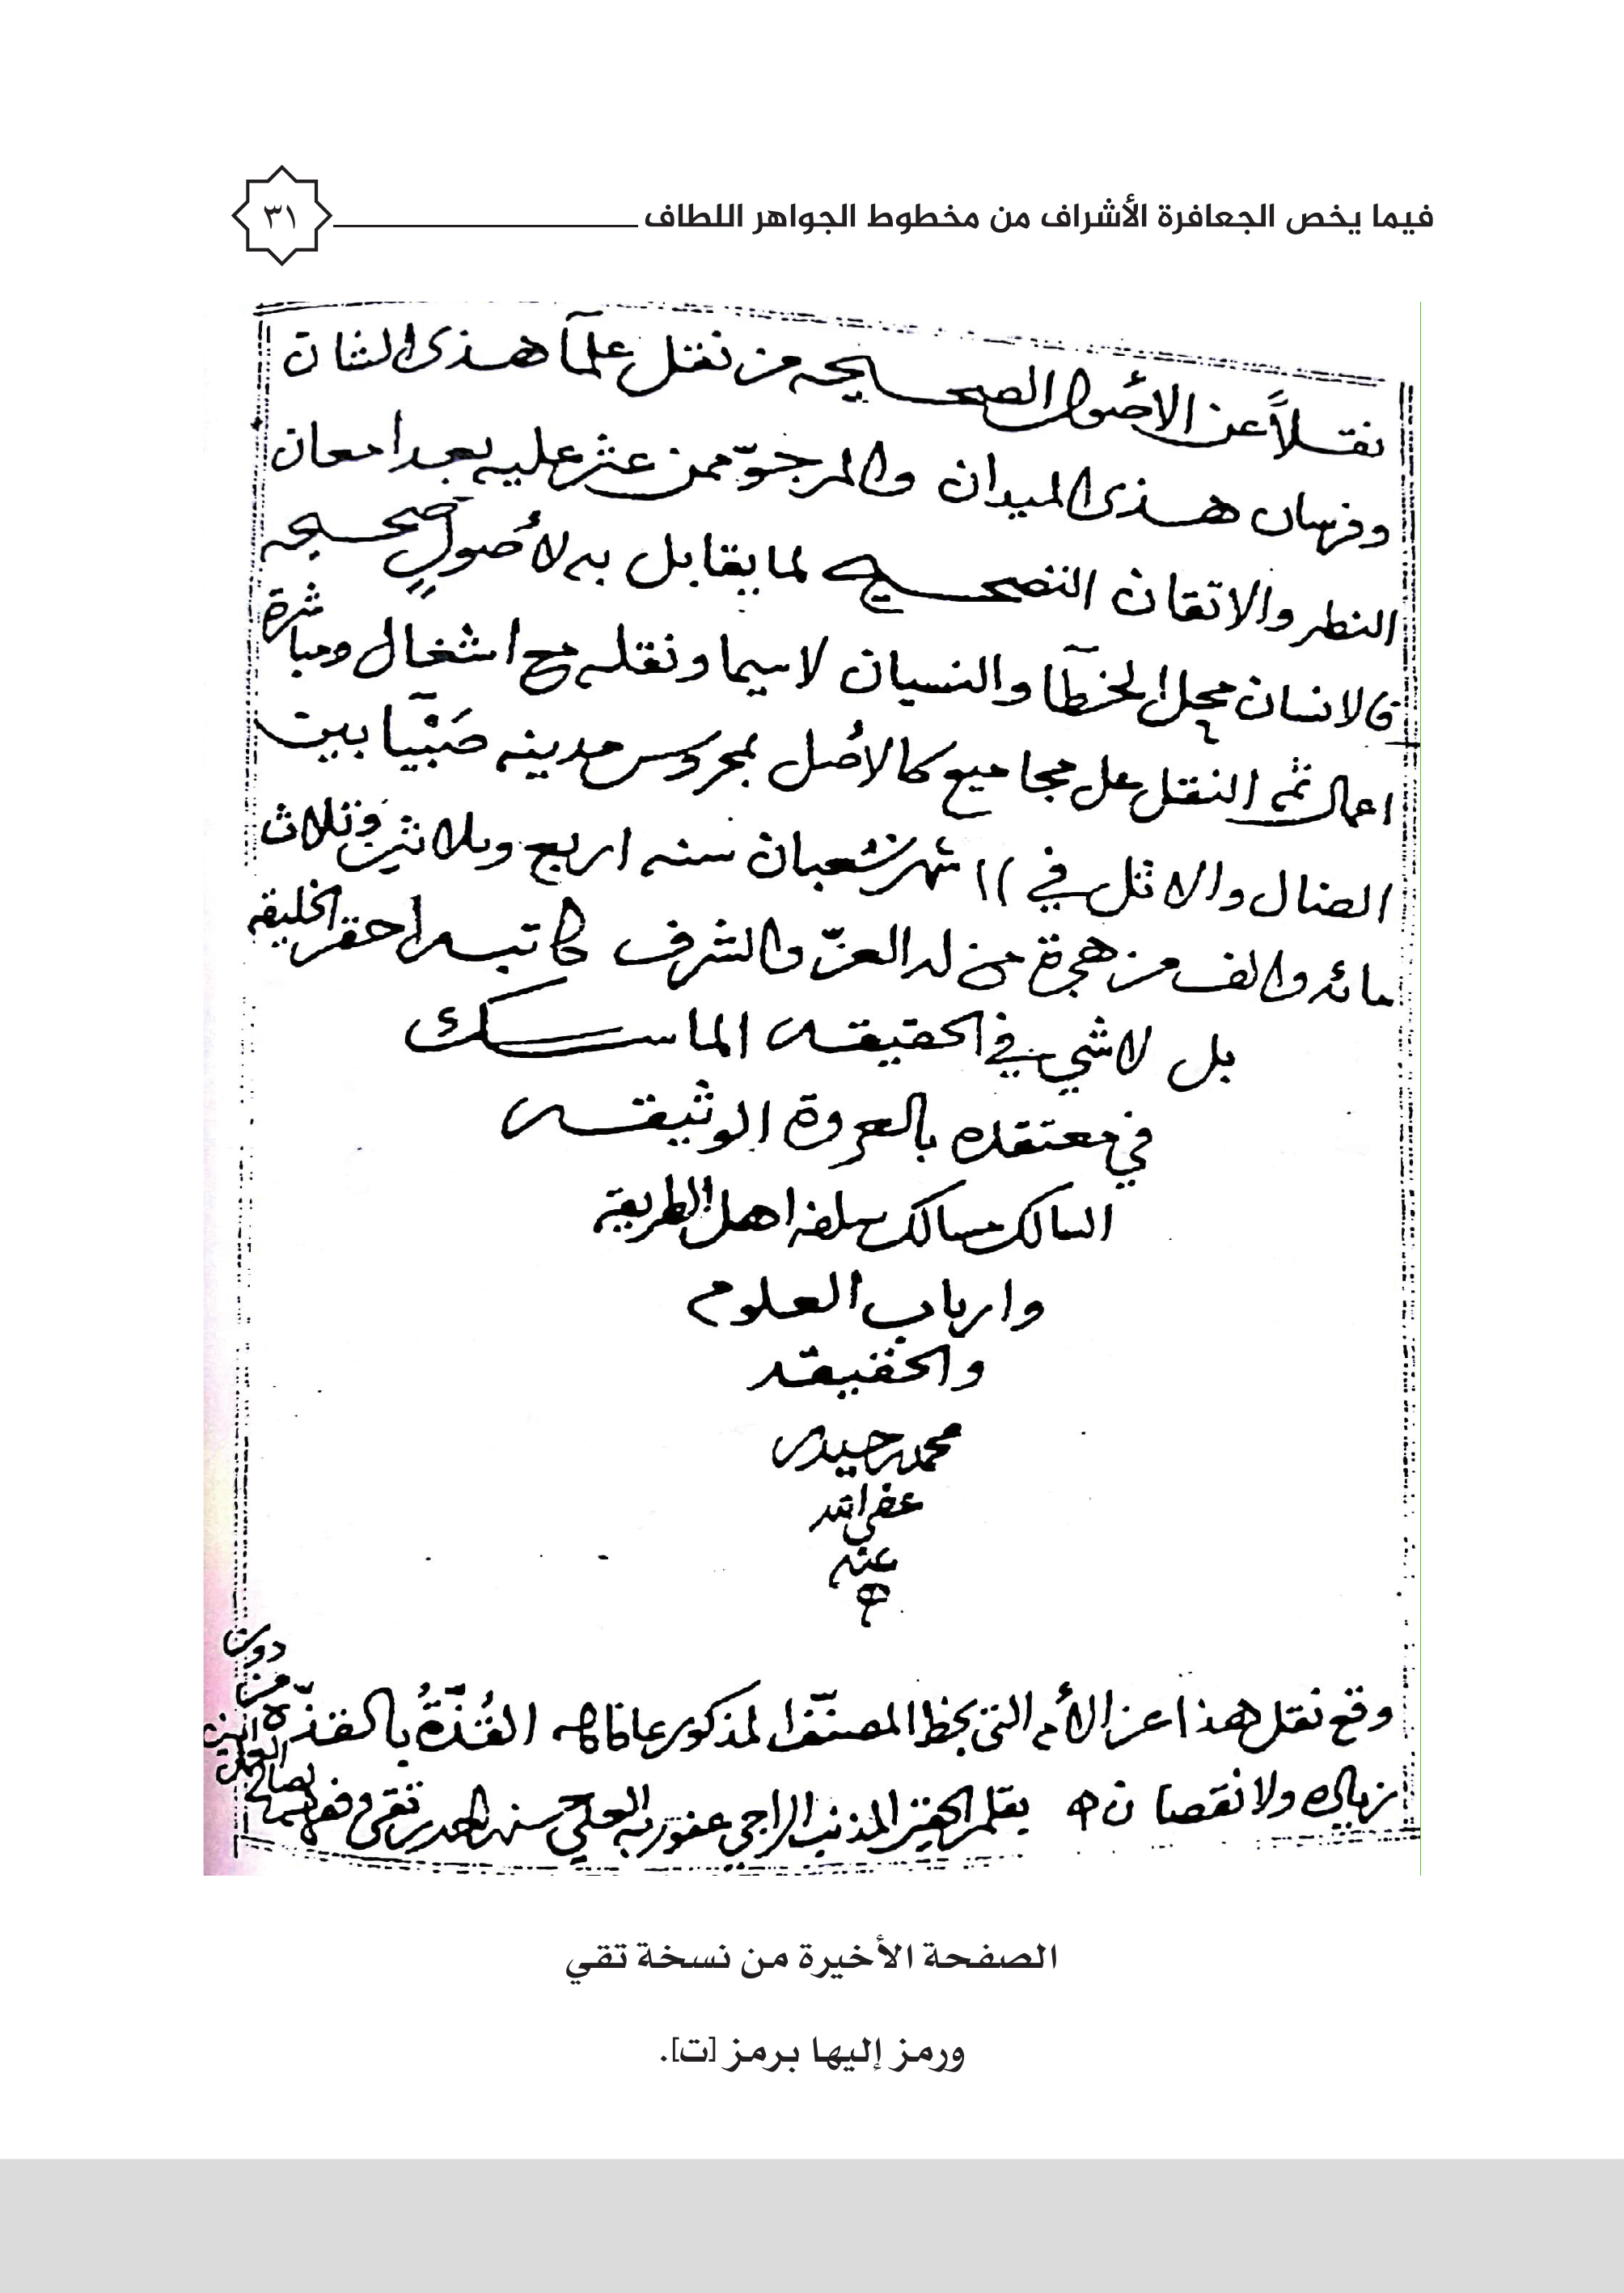 فيما يخص الجعافرة الأشراف من مخطوط الجواهر اللطاف ٣١
نقلاً عن الاصول الصحيحه من نقل علمآ هذى الشان
وفرسان هذى الميدان والمرجوّ ممن عثر عليه بعد امعان
النظر والاتقان التصحيح لما يقابل به لاصولٍ صحيحه
لانسان محل الخطآ والنسيان لاسيما ونقله مع اشغال ومباشرة
اعمال تم النقل على مجاميع كالاصل بمحروس مدينه صَبْيآ بيت
الضال والاثل في ١١ شهر شعبان سنه اربع وثلاثين وثلاث
مائه والف من هجرة من له العزّ والشرف كاتبه احقر الخليقه
بل لاشي في الحقيقه الماسك
في معتقده بالعروة الوثيقه
السالك مسالك سلفه اهل الطريقه
وارباب العلوم
والحقيقه
محمد حيدر
عفى الله
عنه
وقع نقل هذا عن الأم التي بخط المصنّف المذكور القُذّةُ بالقذّة من دون
زياده ولا نقصان بقلم الحقير المذنب الراجي عفو ربه العلي
الصفحة الأخيرة من نسخة تقي
ورمز إليها برمز [ت].